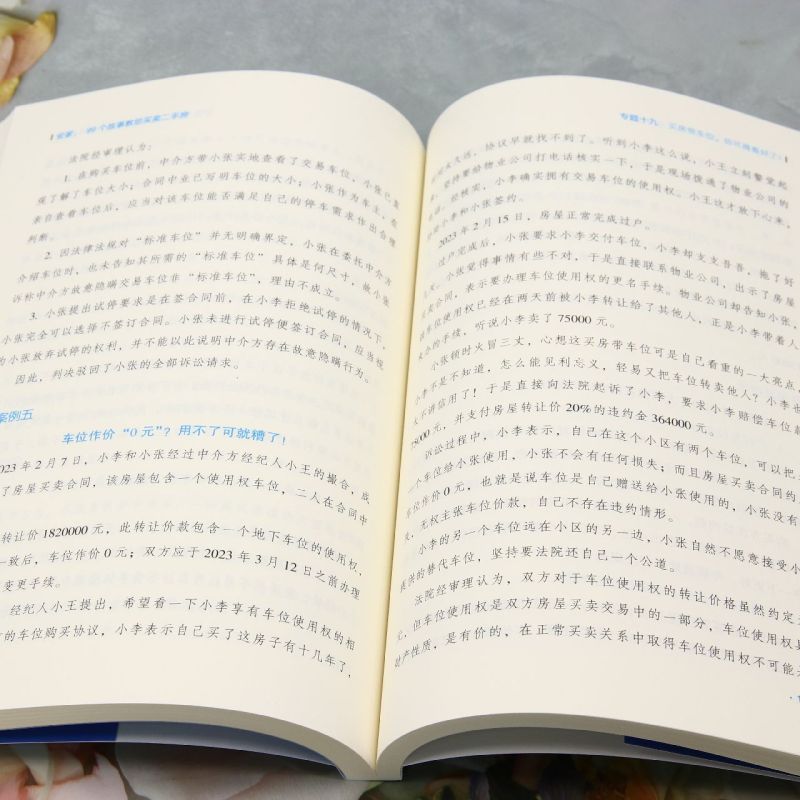 安家：99个故事教您买卖二手房
法院经审理认为：
1. 在购买车位前，中介方带小张实地查看了交易车位，小张已直
观了解了车位大小；合同中业已写明车位的大小；小张作为车主，在
亲自查看车位后，应当对该车位能否满足自己的停车需求作出合理
判断。
2. 因法律法规对“标准车位”并无明确界定，小张在委托中介方
介绍车位时，也未告知其所需的“标准车位”具体是何尺寸，故小张
诉称中介方故意隐瞒交易车位非“标准车位”，理由不成立。
3. 小张提出试停要求是在签合同前，在小李拒绝试停的情况下，
小张完全可以选择不签订合同。小张未进行试停便签订合同，应当视
为小张放弃试停的权利，并不能以此说明中介方存在故意隐瞒行为。
因此，判决驳回了小张的全部诉讼请求。
案例五
车位作价“0元”？用不了可就糟了！
2023年2月7日，小李和小张经过中介方经纪人小王的撮合，成
了房屋买卖合同，该房屋包含一个使用权车位，二人在合同中
转让价1820000元，此转让价款包含一个地下车位的使用权，
一致后，车位作价0元；双方应于2023年3月12日之前办理
变更手续。
经纪人小王提出，希望看一下小李享有车位使用权的相
的车位购买协议，小李表示自己买了这房子有十几年了，
专题十九 买房带车位，
久远，协议早就找不到了。听到小李这么说，小王立刻警觉起
坚持要给物业公司打电话核实一下，于是现场拨通了物业公司的
经核实，小李确实拥有交易车位的使用权。小王这才放下心来，
小李和小张签约。
2023年2月15日，房屋正常完成过户。
过户完成后，小张要求小李交付车位，小李却支支吾吾，拖了好
几天。小张觉得事情有些不对，于是直接联系物业公司，出示了房屋
买卖合同，表示要办理车位使用权的更名手续。物业公司却告知小张，
该车位使用权已经在两天前被小李转让给了其他人，正是小李带着人
来办的手续，听说小李卖了75000元。
小张顿时火冒三丈，心想这买房带车位可是自己看重的一大亮点，
小李不是不知道，怎么能见利忘义，轻易又把车位转卖他人？小李也
太不讲信用了！于是直接向法院起诉了小李，要求小李赔偿车位款
75000元，并支付房屋转让价20%的违约金364000元。
诉讼过程中，小李表示，自己在这个小区有两个车位，可以把另
一个车位给小张使用，小张不会有任何损失；而且房屋买卖合同约
车位作价0元，也就是说车位是自己赠送给小张使用的，小张没有
失，无权主张车位价款，自己不存在违约情形。
小李的另一个车位远在小区的另一边，小张自然不愿意接受小
提供的替代车位，坚持要法院还自己一个公道。
法院经审理认为，双方对于车位使用权的转让价格虽然约定为
元，但车位使用权是双方房屋买卖交易中的一部分，车位使用权具
财产性质，是有价的，在正常买卖关系中取得车位使用权不可能